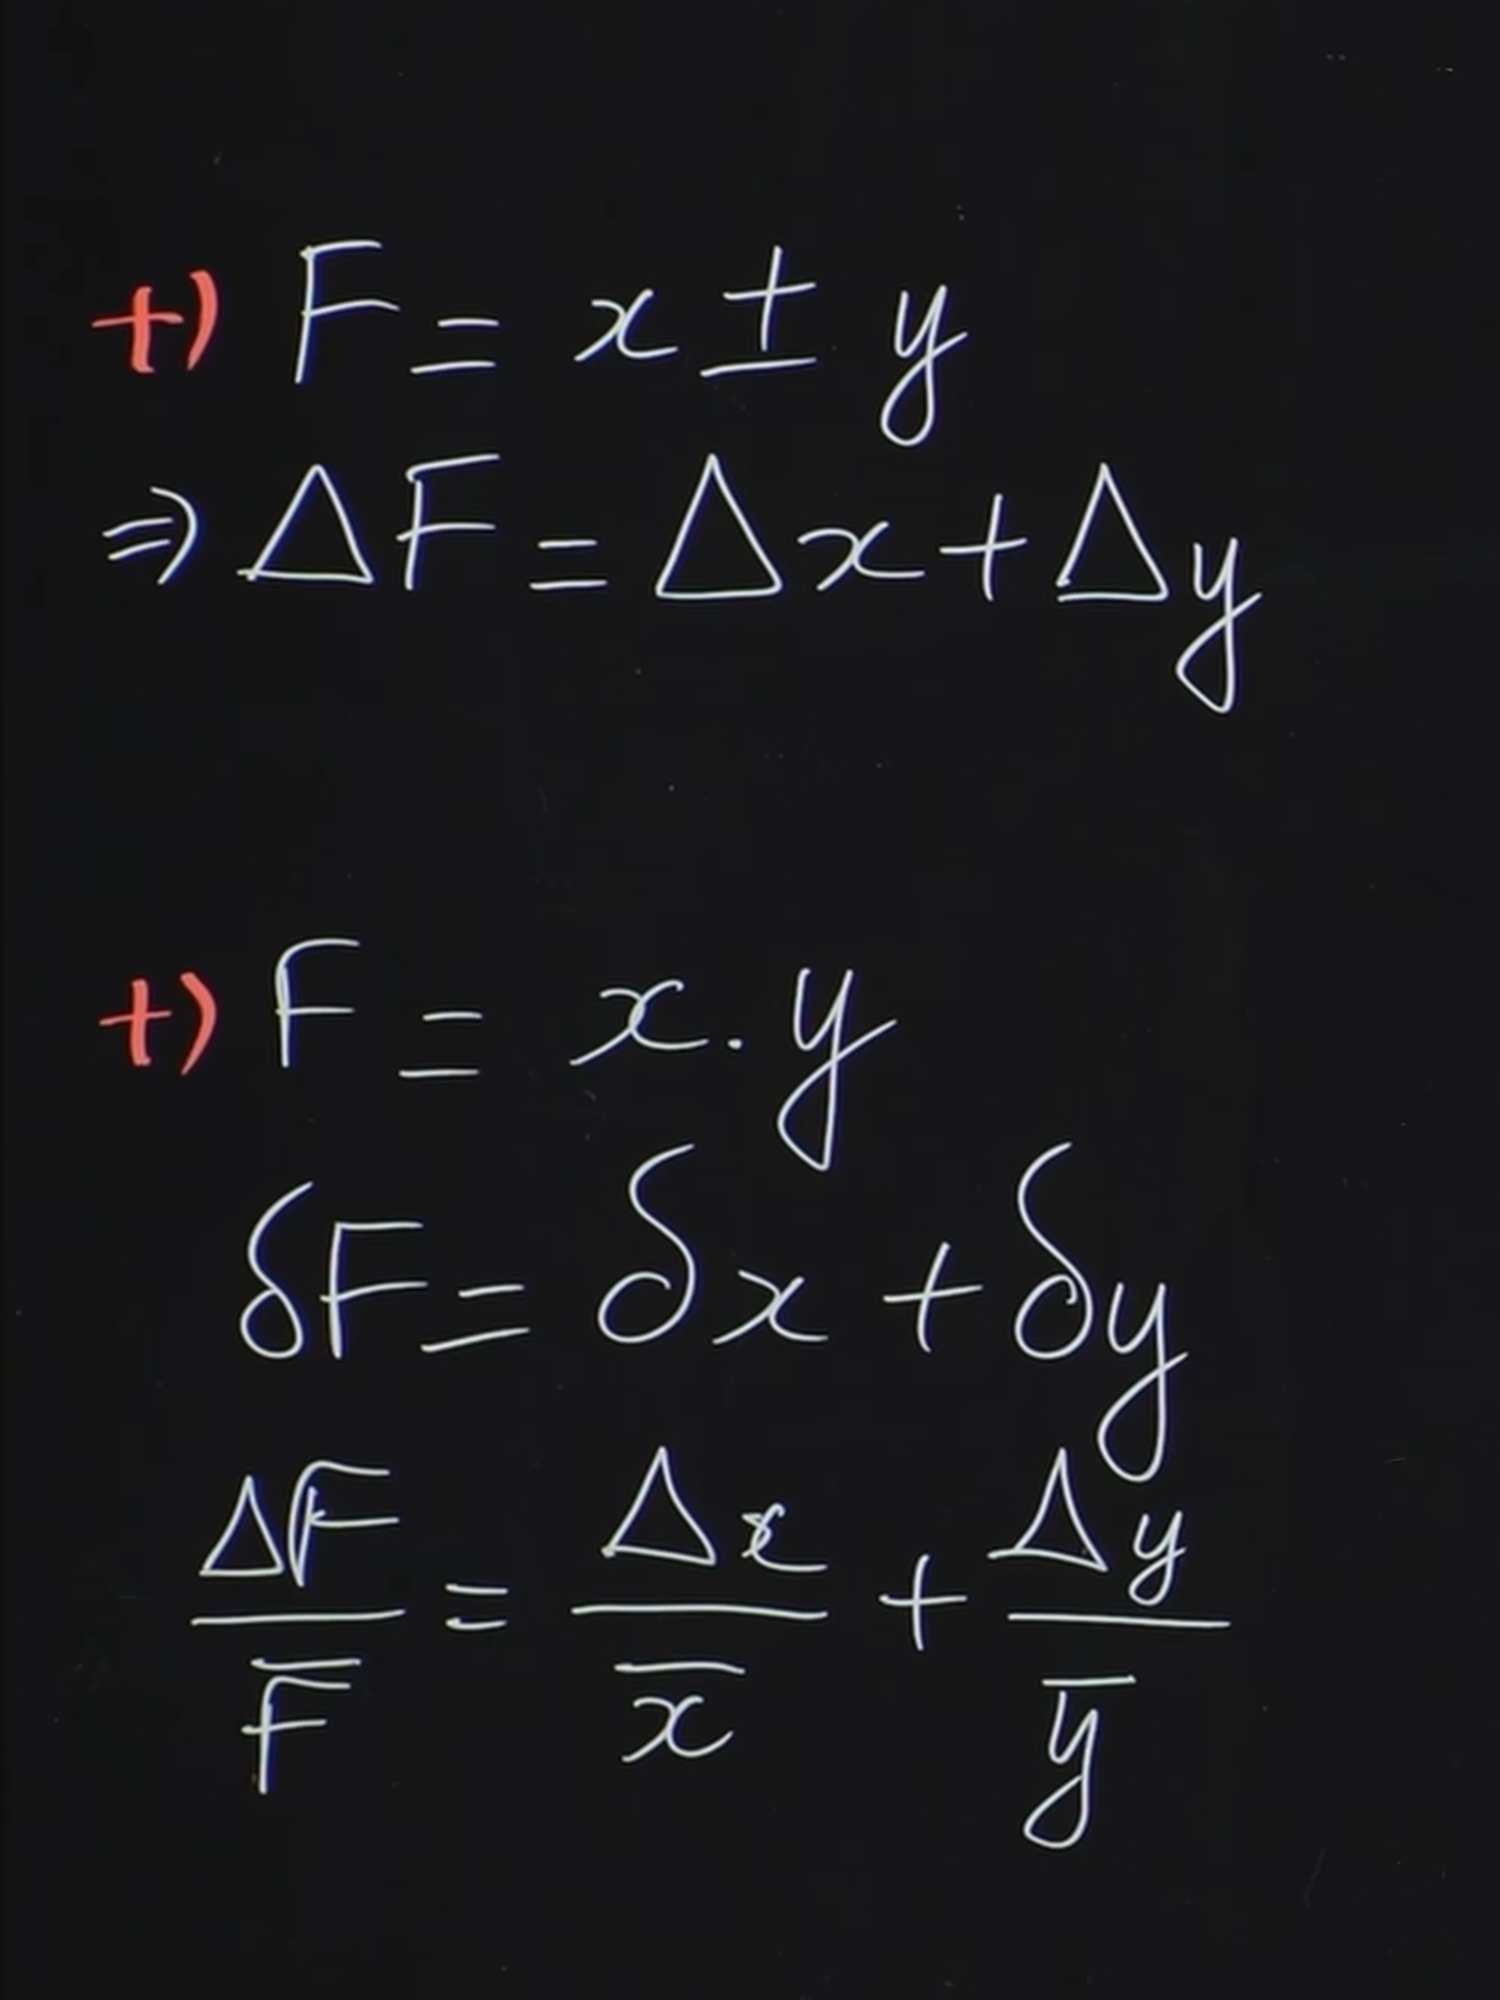 +) F = x ± y
⇒ ΔF = Δx + Δy
+) F = x . y
δF = δx + δy
ΔF/F̅ = Δx/x̅ + Δy/y̅